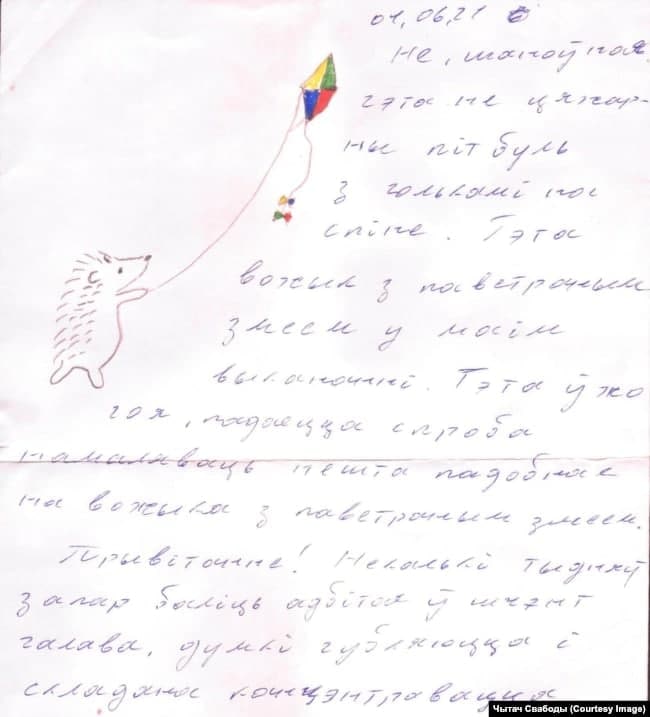 01,06,21
Не, шаноўная
гэта не цяжар-
ны пітбуль
з голькамі на
спіне. Гэта
вожык з паветраным
змеем у маім
выкананні. Гэта ўжо
я, падаецца спроба
намаляваць нешта падобнае
на вожыка з паветраным змеем.
Прывітанне! Некалькі тыдняў
запар баліць адбітая ў
галава, думкі губляюцца і
складана канцэнтравацца
Чытач Свабоды (Courtesy Image)